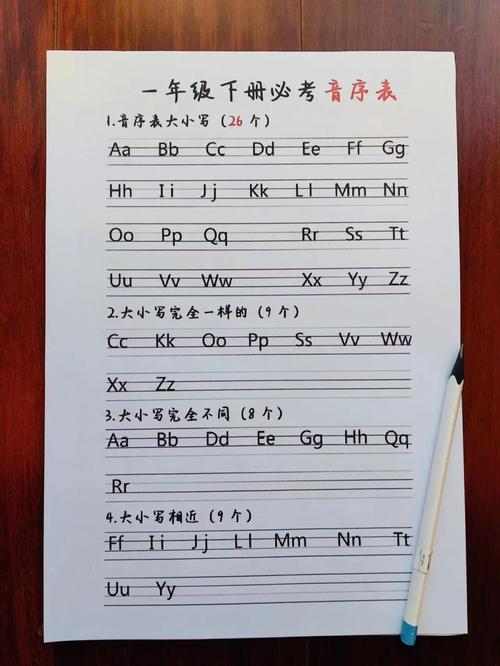 一年级下册必考音序表
1.音序表大小写（26个）
Aa Bb Cc Dd Ee Ff Gg
Hh Ii Jj Kk Ll Mm Nn
Oo Pp Qq Rr Ss Tt
Uu Vv Ww Xx Yy Zz
2.大小写完全一样的（9个）
Cc Kk Oo Pp Ss Vv Ww
Xx Zz
3.大小写完全不同（8个）
Aa Bb Dd Ee Gg Hh Qq
Rr
4.大小写相近（9个）
Ff Ii Jj Ll Mm Nn Tt
Uu Yy